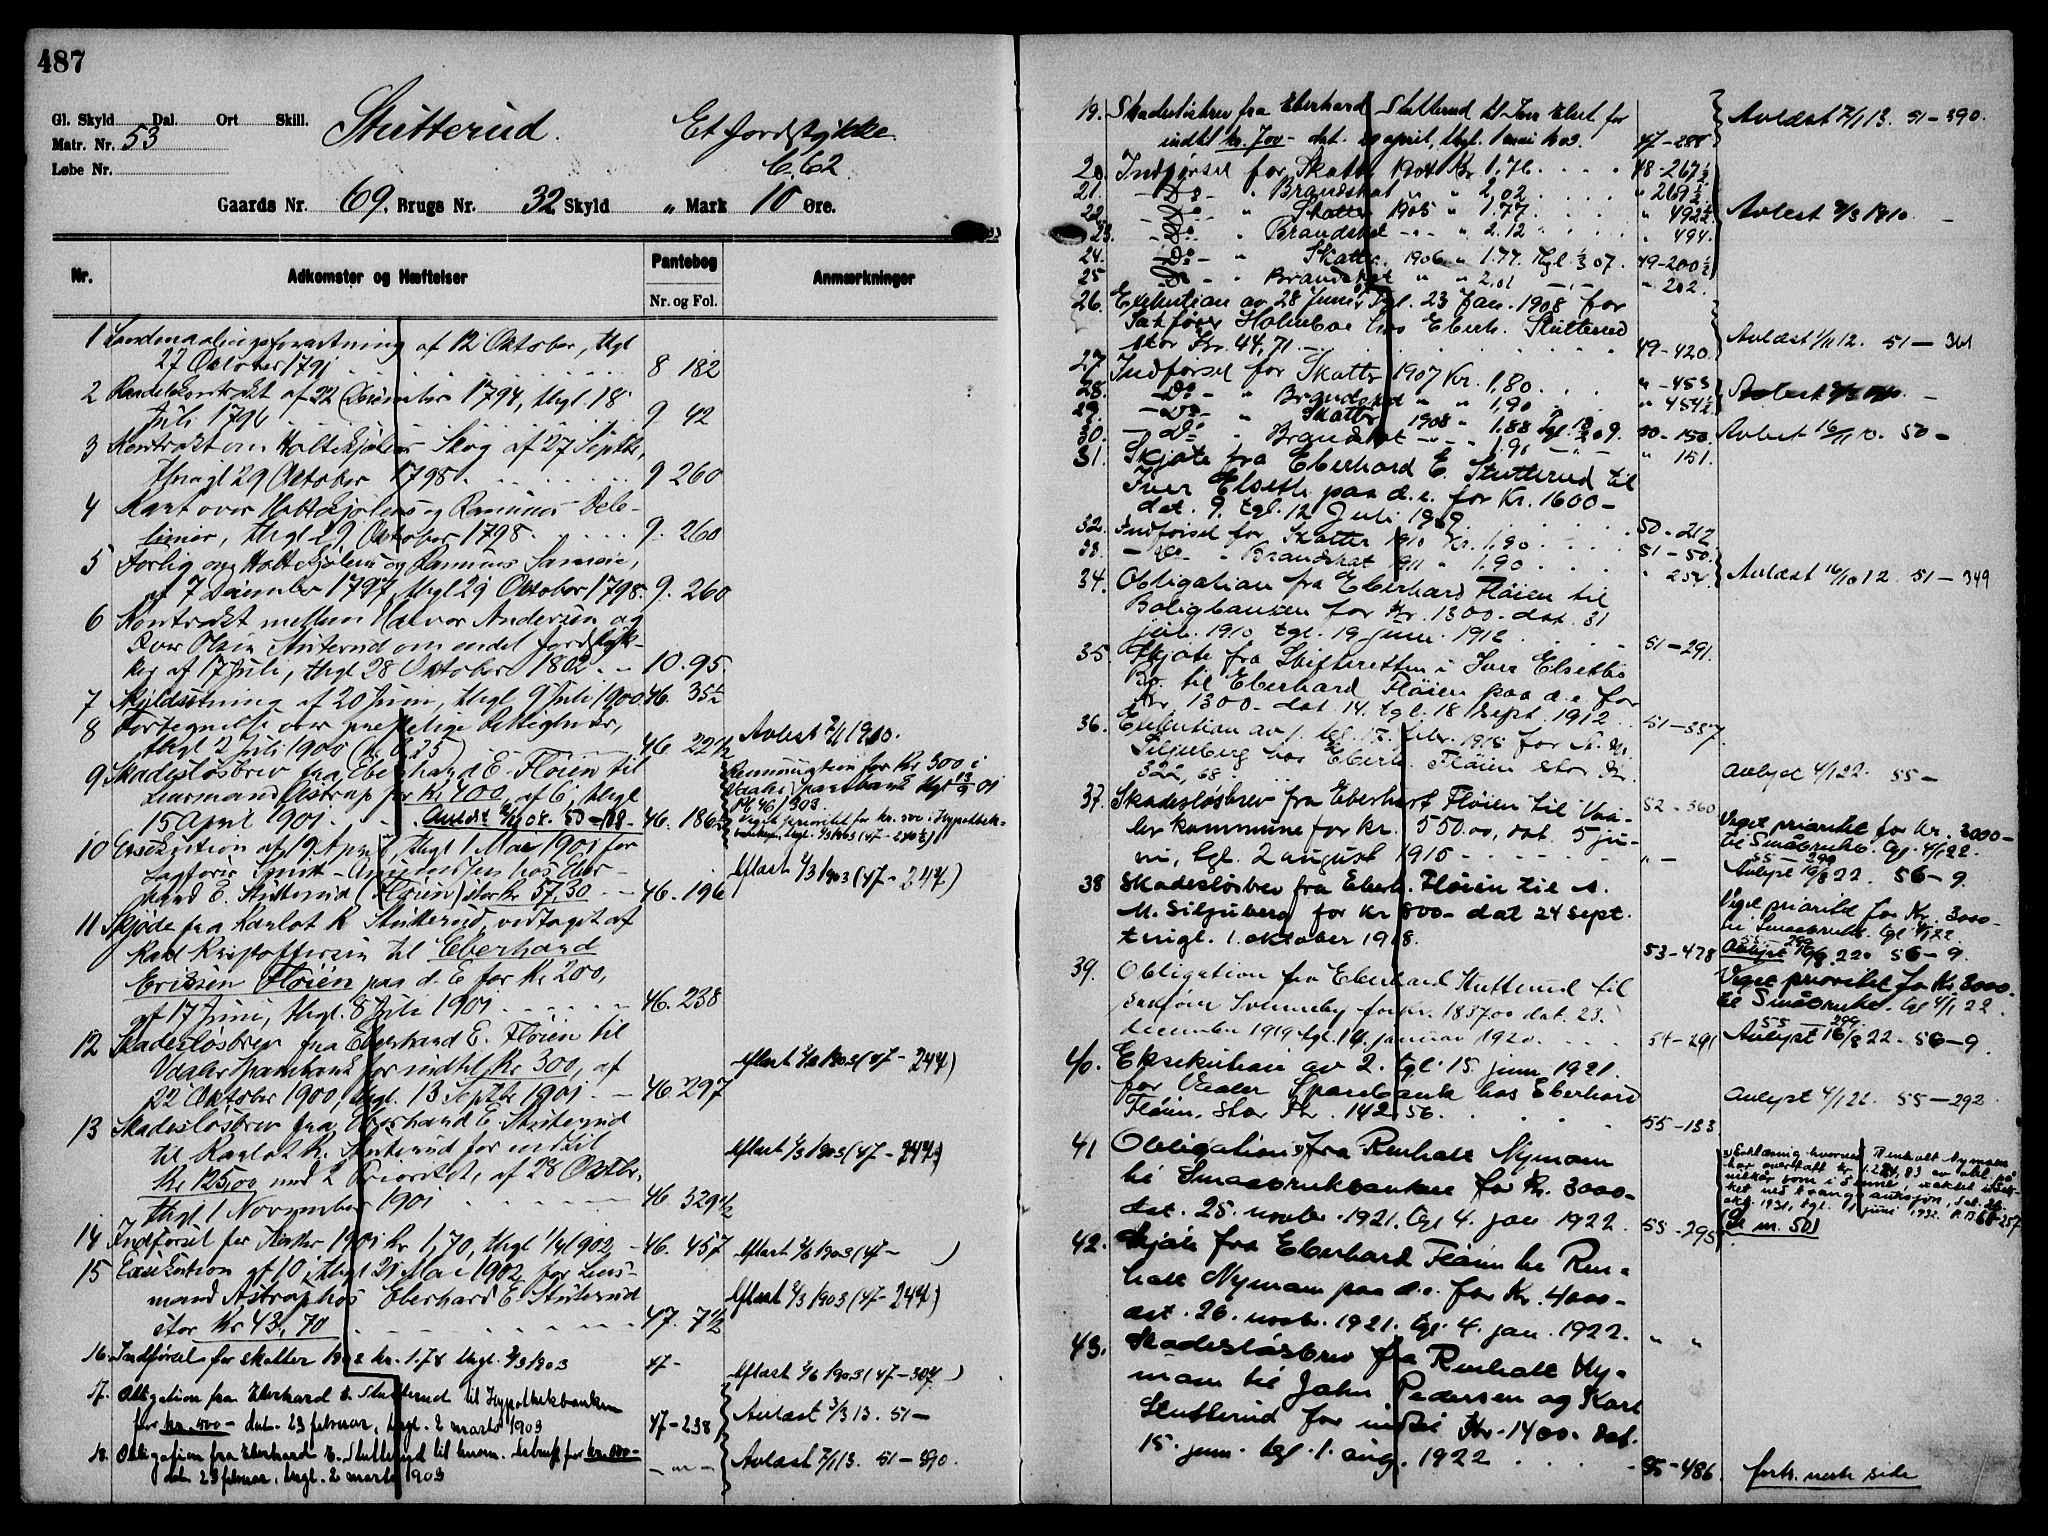 487
Gl. Skyld Dal. Ort Skill.
Stutterud. Et jordstykke
Matr. Nr. 53
C. 62
Løbe Nr.
Gaards Nr. 69. Brugs Nr. 32 Skyld „ Mark 10 Øre.
Nr. Adkomster og Hæftelser Pantebog Anmærkninger
Nr. og Fol.
1 af 12 Oktober, thgl
27 Oktober 1791 8 182
2 af 22 December 1794, thgl. 18
Juli 1796 9 42
3 Kontrakt om Holtekjølens Skog af 27 Septbr,
thingl 29 Oktober 1798 9 260
4 Kart over Holtekjølens og Rasmus
linier, thgl 29 Oktober 1798 9. 260
5 Forlig om Holtekjølens og Rasmus
af 7 December 1797 thgl 29 Oktober 1798. 9. 260
6 Kontrakt mellem Halvor Andersen og
Iver Olsen Stuterud om endel jordstyk-
ker af 17 Juli, thgl 28 Oktober 1802 10. 95
7 Skyldsætning af 20 Juni, thgl. 9 Juli 1900 46. 35
8 Fortegnelse over Rettigheder,
thgl 2 Juli 1900 46 22½ Avlest 1910.
9 Skadesløsbrev fra Eberhard E. Fløien til
Lensmand Astrup for Kr 400, af 6, thgl
15 April 1901 08. 50 46. 186
10 Exsekution af 9 April, thgl 1 Mai 1901 for
Sagfører hos Eber-
hard E. Stutterud (Fløien) stor kr. 57,30 46. 196 Aflæst 1903 (47 - 247)
11 Skjøde fra Karlot K Stutterud, vedtaget af
Karl Kristoffersen til Eberhard
Erissen Fløien paa d. E for Kr 200,
af 17 Juni, thgl. 8 Juli 1901 46. 238
12 Skadesløsbrev fra Eberhard E. Fløien til
Vaaler Sparebank for indtil Kr 300, af
22 Oktober 1900, thgl. 13 Septbr 1901 46. 297 Aflæst 1903 (47 - 247)
13 Skadesløsbrev fra Eberhard E. Stuterud
til Karlot K. Stuterud for indtil
Kr 125,00 med 2 Prioritet, af 28 Oktbr,
thgl 1 November 1901 46. 329½ Aflæst 1903 (47 - 247)
14 Indførsel for Skatter 1901 kr 1,70, thgl 1902 46. 457 Aflæst 1903 (47 - )
15 Exekution af 10, thgl 21 Mai 1902 for Lens-
mand Astrup hos Eberhard E Stuterud
stor Kr 43,70 47. 72 Aflæst 1903 (47 - 247)
16. Indførsel for skatter 1902 kr. 1.78 thgl. 1903 47 - Aflæst 1903 (47 - 304)
17. Obligation fra Eberhard E. Stutterud til Hypothekbanken
for kr. 500 - dat. 23 februar, thgl. 2 marts 1903 47 - 238 Avlæst 3/3 13. 51 -
18. Obligation fra Eberhard E. Stutterud til
dat. 23 februar, thgl. 2 marts 1903 Avlæst 7/1 13. 51 - 390.
19. Skadesløsbrev fra Eberhard Stutterud til Iver Elset for
indtil kr. 700 - dat. 29 april, thgl. 1 mai 1903. 47 - 288 Avlæst 7/1 13. 51 - 390.
20. Indførsel for Skatter 1904 Kr. 1.76 48 - 267½
21. - Do - „ Brandskat „ „ 2,02 „ 269½
22. - Do - „ Skatter 1905 „ 1.77 „ 492½ Avlest 1910.
23. - Do - „ Brandskat „ 2.12 „ 494.
24. - Do - „ Skatter 1906 „ 1.77. tgl. 07. 49 - 200½
25 - Do - „ Brandskat „ „ 2,01 „ 202.
26. Exekution av 28 Juni, tgl. 23 Jan. 1908 for
Sakfører Holmboe hos Eberh. Stutterud
stor Kr. 44,71 49 - 420. Avlæst 1/11 12. 51 - 361
27. Indførsel for Skatter 1907 Kr. 1,80. „ - 453
28. - Do - „ Brandskat „ „ 1,90 „ 454½
29. - Do - „ Skatter 1908 „ 1.88 tgl. 09. 50 - 150. Avlest 16/11 10. 50 -
30. - Do - „ Brandskat „ 1.91 „ 151.
31. Skjøte fra Eberhard E. Stutterud til
Iver Elseth paa d.e. for Kr. 1600 -
dat. 9. tgl. 12 Juli 1909. 50 - 212
32. Indførsel for Skatter 1910 Kr. 1,90 51 - 50.
33. - Do - „ Brandskat 1911 „ 1,90 „ 254. Avlæst 16/10 12. 51 - 349
34. Obligation fra Eberhard Fløien til
Boligbanken for Kr. 1300 - dat. 31
1910 tgl. 19 juni 1912 51 - 291.
35. Skjøte fra Skifteretten i Iver Elseths
Bo. til Eberhard Fløien paa d.e. for
Kr. 1300 - dat. 14. tgl. 18 Sept. 1912 51 - 337.
36. Exekution av 1. tgl. 12. febr. 1915 for
Siljuberg hos Eberh. Fløien stor Kr.
322,68. 52 - 360 Avlyst 4/1 22. 55 -
37. Skadesløsbrev fra Eberhart Fløien til Vaa-
ler kommune for kr. 550.00, dat. 5 ju-
ni, tgl. 2 august 1915 „ - Veget prioritet for Kr. 3000 -
til Småbrukb. tgl. 4/1 22.
55 - 299
Avlyst 16/8 22. 56 - 9.
38 Skadesløsbrev fra Eberh. Fløien til
M. Siljuberg for kr 800 - dat 24 sept.
tingl. 1. oktober 1918. 53 - 478 Veget prioritet for Kr. 3000 -
til Smaabrukb. tgl 4/1 22
Avlyst 16/8 22 56 - 9.
39. Obligation fra Eberhard Stutterud til
sakfører Svenneby for kr. 1857.00 dat. 23.
december 1919 tgl. 14. januar 1920. 54 - 291 Veget prioritet for Kr 3000.
til Småbrukb. tgl 4/1 22.
55 - 299
Avlyst 16/8 22. 56 - 9.
40. Eksekution av 2. tgl. 15 juni 1921.
for Vaaler Sparebank hos Eberhard
Fløien, stor Kr. 142,56. 55 - 133 Avlyst 4/1 22. 55 - 292.
41 Obligation fra Renhalt Nyman
til Smaabrukbanken for Kr. 3000 -
dat. 25. novbr. 1921. tgl 4. jan 1922. 55 - 295 (Se nr. 50)
42. Skjøte fra Eberhard Fløien til Ren-
halt Nyman paa d.e. for Kr. 4000 -
dat. 26. novbr. 1921. tgl. 4. jan. 1922. „ „
43. Skadesløsbrev fra Renhalt Ny-
man til Johan Pedersen og Karl
Stutterud for indtil Kr. 1400 - dat.
15. juni. tgl. 1. aug. 1922 55 - 486. forts. neste side